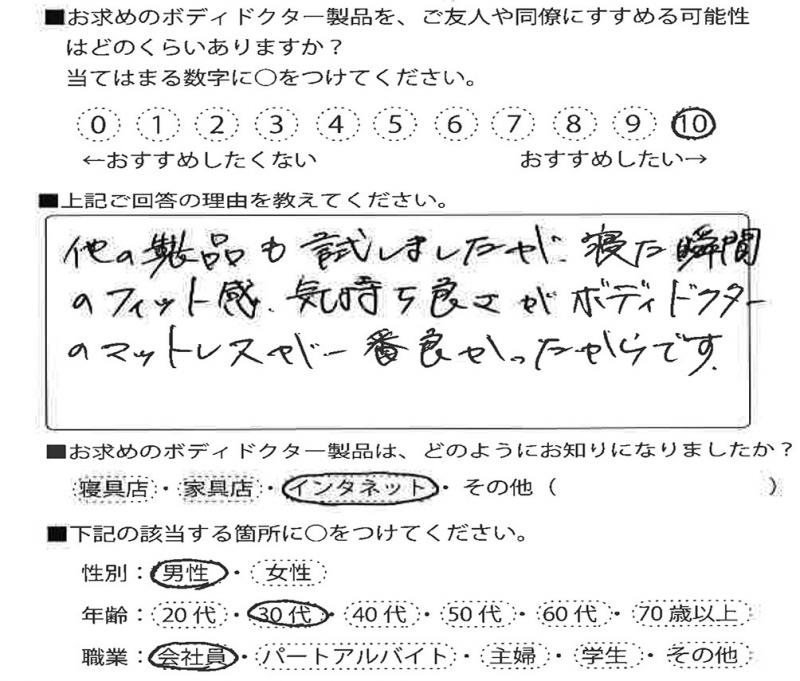 ■お求めのボディドクター製品を、ご友人や同僚にすすめる可能性
はどのくらいありますか？
当てはまる数字に○をつけてください。
0 1 2 3 4 5 6 7 8 9 10
←おすすめしたくない おすすめしたい→
■上記ご回答の理由を教えてください。
他の製品も試しましたが、寝た瞬間
のフィット感、気持ち良さがボディドクター
のマットレスが一番良かったからです。
■お求めのボディドクター製品は、どのようにお知りになりましたか？
寝具店・家具店・インタネット・その他（　　　）
■下記の該当する箇所に○をつけてください。
性別：男性・女性
年齢：20代・30代・40代・50代・60代・70歳以上
職業：会社員・パートアルバイト・主婦・学生・その他